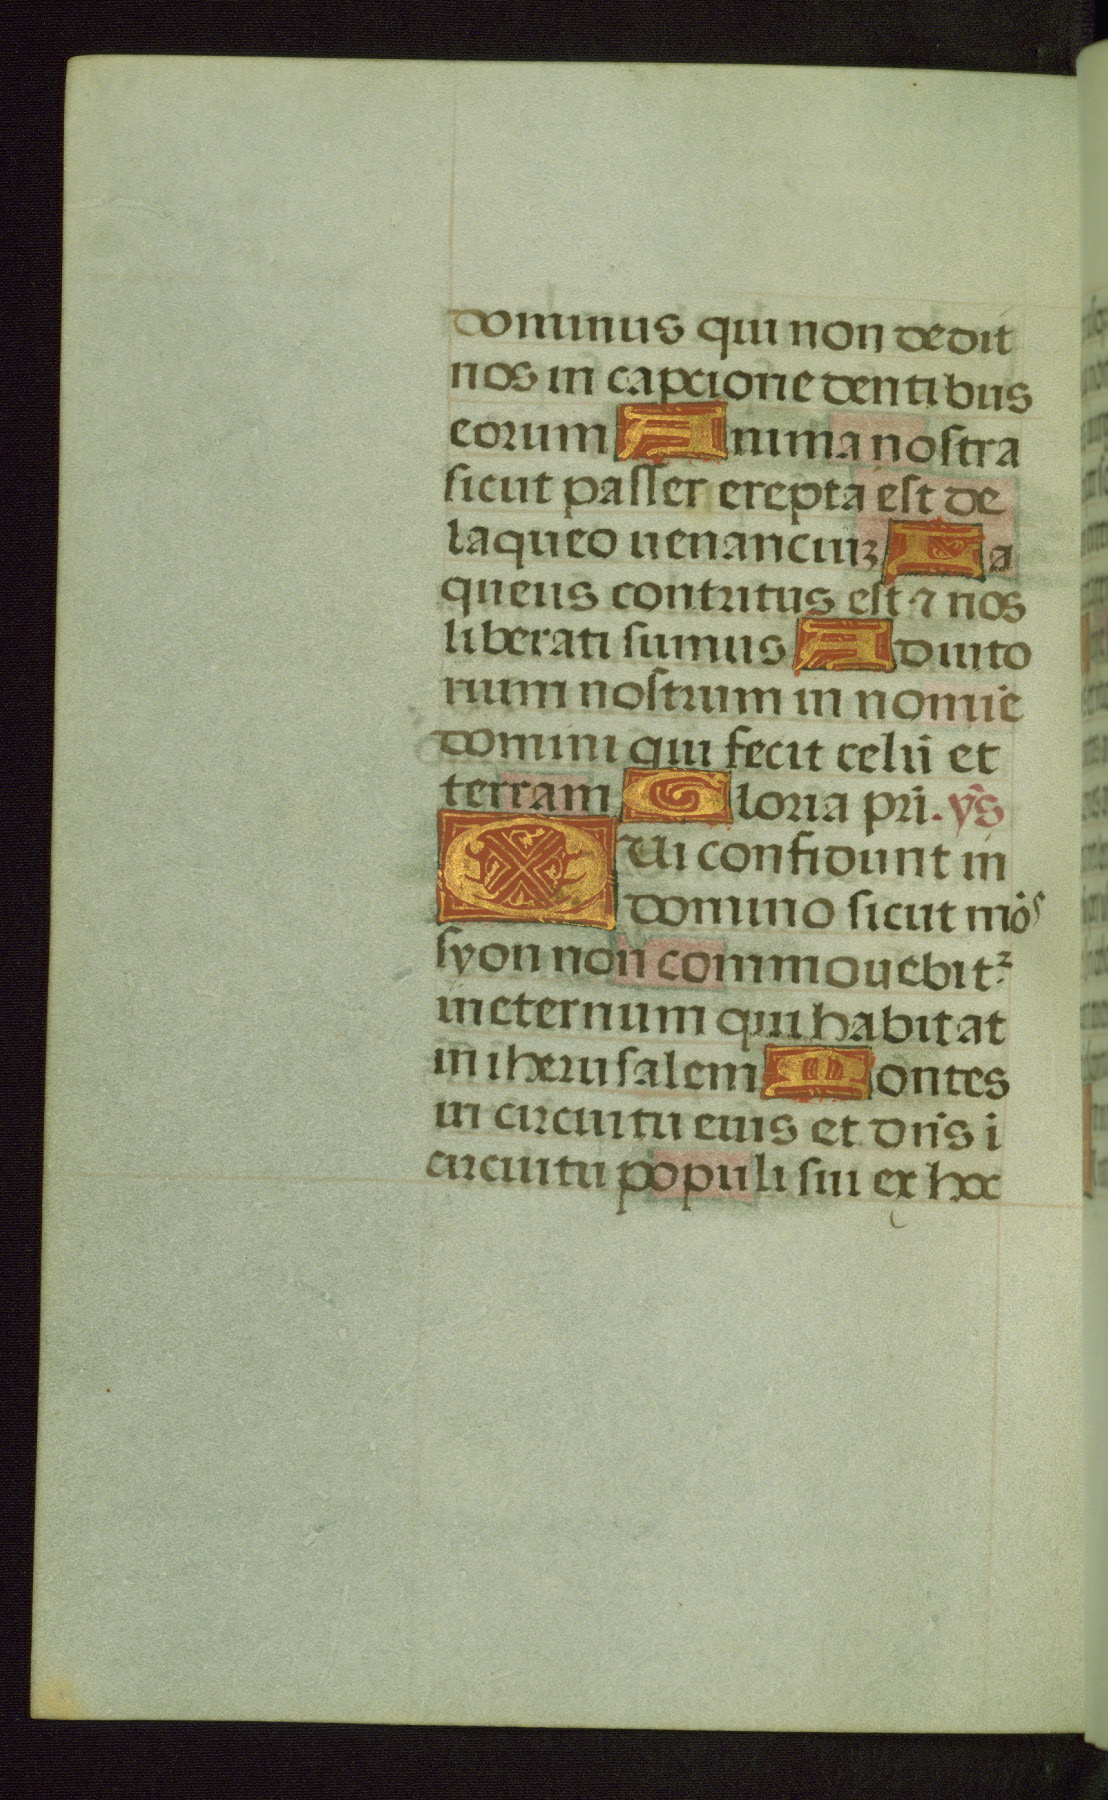 dominus qui non dedit
nos in capcione dentibus
eorum Anima nostra
sicut passer erepta est de
laqueo uenanciuꝫ La
queus contritus est ⁊ nos
liberati sumus Adiuto
rium nostrum in nomīe
domini qui fecit celū et
terram Gloria pr̄i. p̄s
QUi confidunt in
domino sicut mōs
syon non commouebit᷑
in eternum qui habitat
in iherusalem Montes
in circuitu eius et dn̄s ī
circuitu populi sui ex hoc